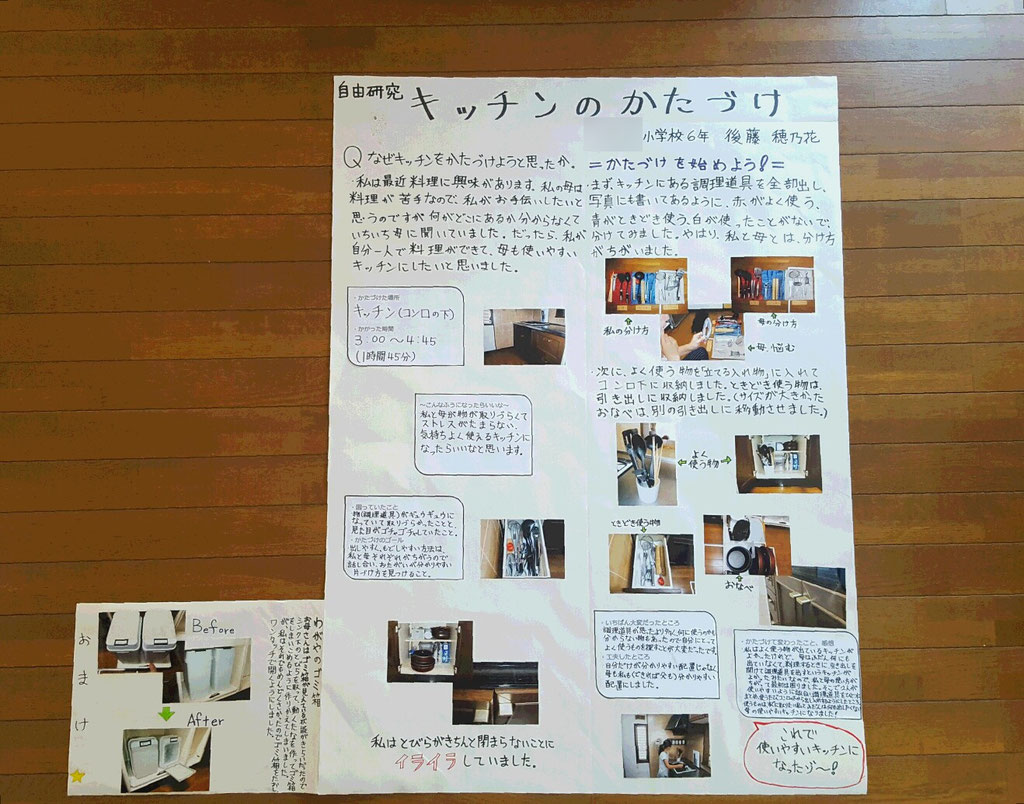 自由研究
キッチンのかたづけ
小学校6年 後藤 穂乃花
Q なぜキッチンをかたづけようと思ったか。
・私は最近料理に興味があります。私の母は
料理が苦手なので、私がお手伝いしたいと
思うのですが何がどこにあるか分からなくて
いちいち母に聞いていました。だったら、私が
自分一人で料理ができて、母も使いやすい
キッチンにしたいと思いました。
・かたづけた場所
キッチン(コンロの下)
・かかった時間
3:00〜4:45
(1時間45分)
〜こんなふうになったらいいな〜
私と母が物が取りづらくて
ストレスがたまらない、
気持ちよく使えるキッチンに
なったらいいなと思います。
・困っていたこと
物(調理道具)がギュウギュウに
なっていて取りづらかったことと、
見た目がゴチャゴチャしていたこと。
・かたづけのゴール
出しやすく、もどしやすい方法は、
私と母それぞれがちがうので
話し合い、おたがいが分かりやすい
片づけ方を見つけること。
私はとびらがきちんと閉まらないことに
イライラしていました。
=かたづけを始めよう!=
まず、キッチンにある調理道具を全部出し、
写真にも書いてあるように、赤がよく使う、
青がときどき使う、白が使ったことがないで、
分けてみました。やはり、私と母とは、分け方
がちがいました。
私の分け方
母の分け方
母、悩む
・次に、よく使う物を「立てる入れ物」に入れて
コンロ下に収納しました。ときどき使う物は、
引き出しに収納しました。(サイズが大きかった
おなべは、別の引き出しに移動させました。)
よく
使う物
ときどき使う物
おなべ
・いちばん大変だったところ
調理道具が思ったより多く、何に使うのかも
分からない物もあったので自分にとって
よく使うものを探すことが大変だったです。
・工夫したところ
自分だけが分かりやすい配置じゃなく
母も私も(できれば父も)分かりやすい
配置にしました。
・かたづけて変わったこと、感想
私はよく使う物が出ているキッチンが
これで
使いやすいキッチンに
なったゾ〜!
おまけ
Before
After
わがやのゴミ箱
ワンタッチで開くようにしました。